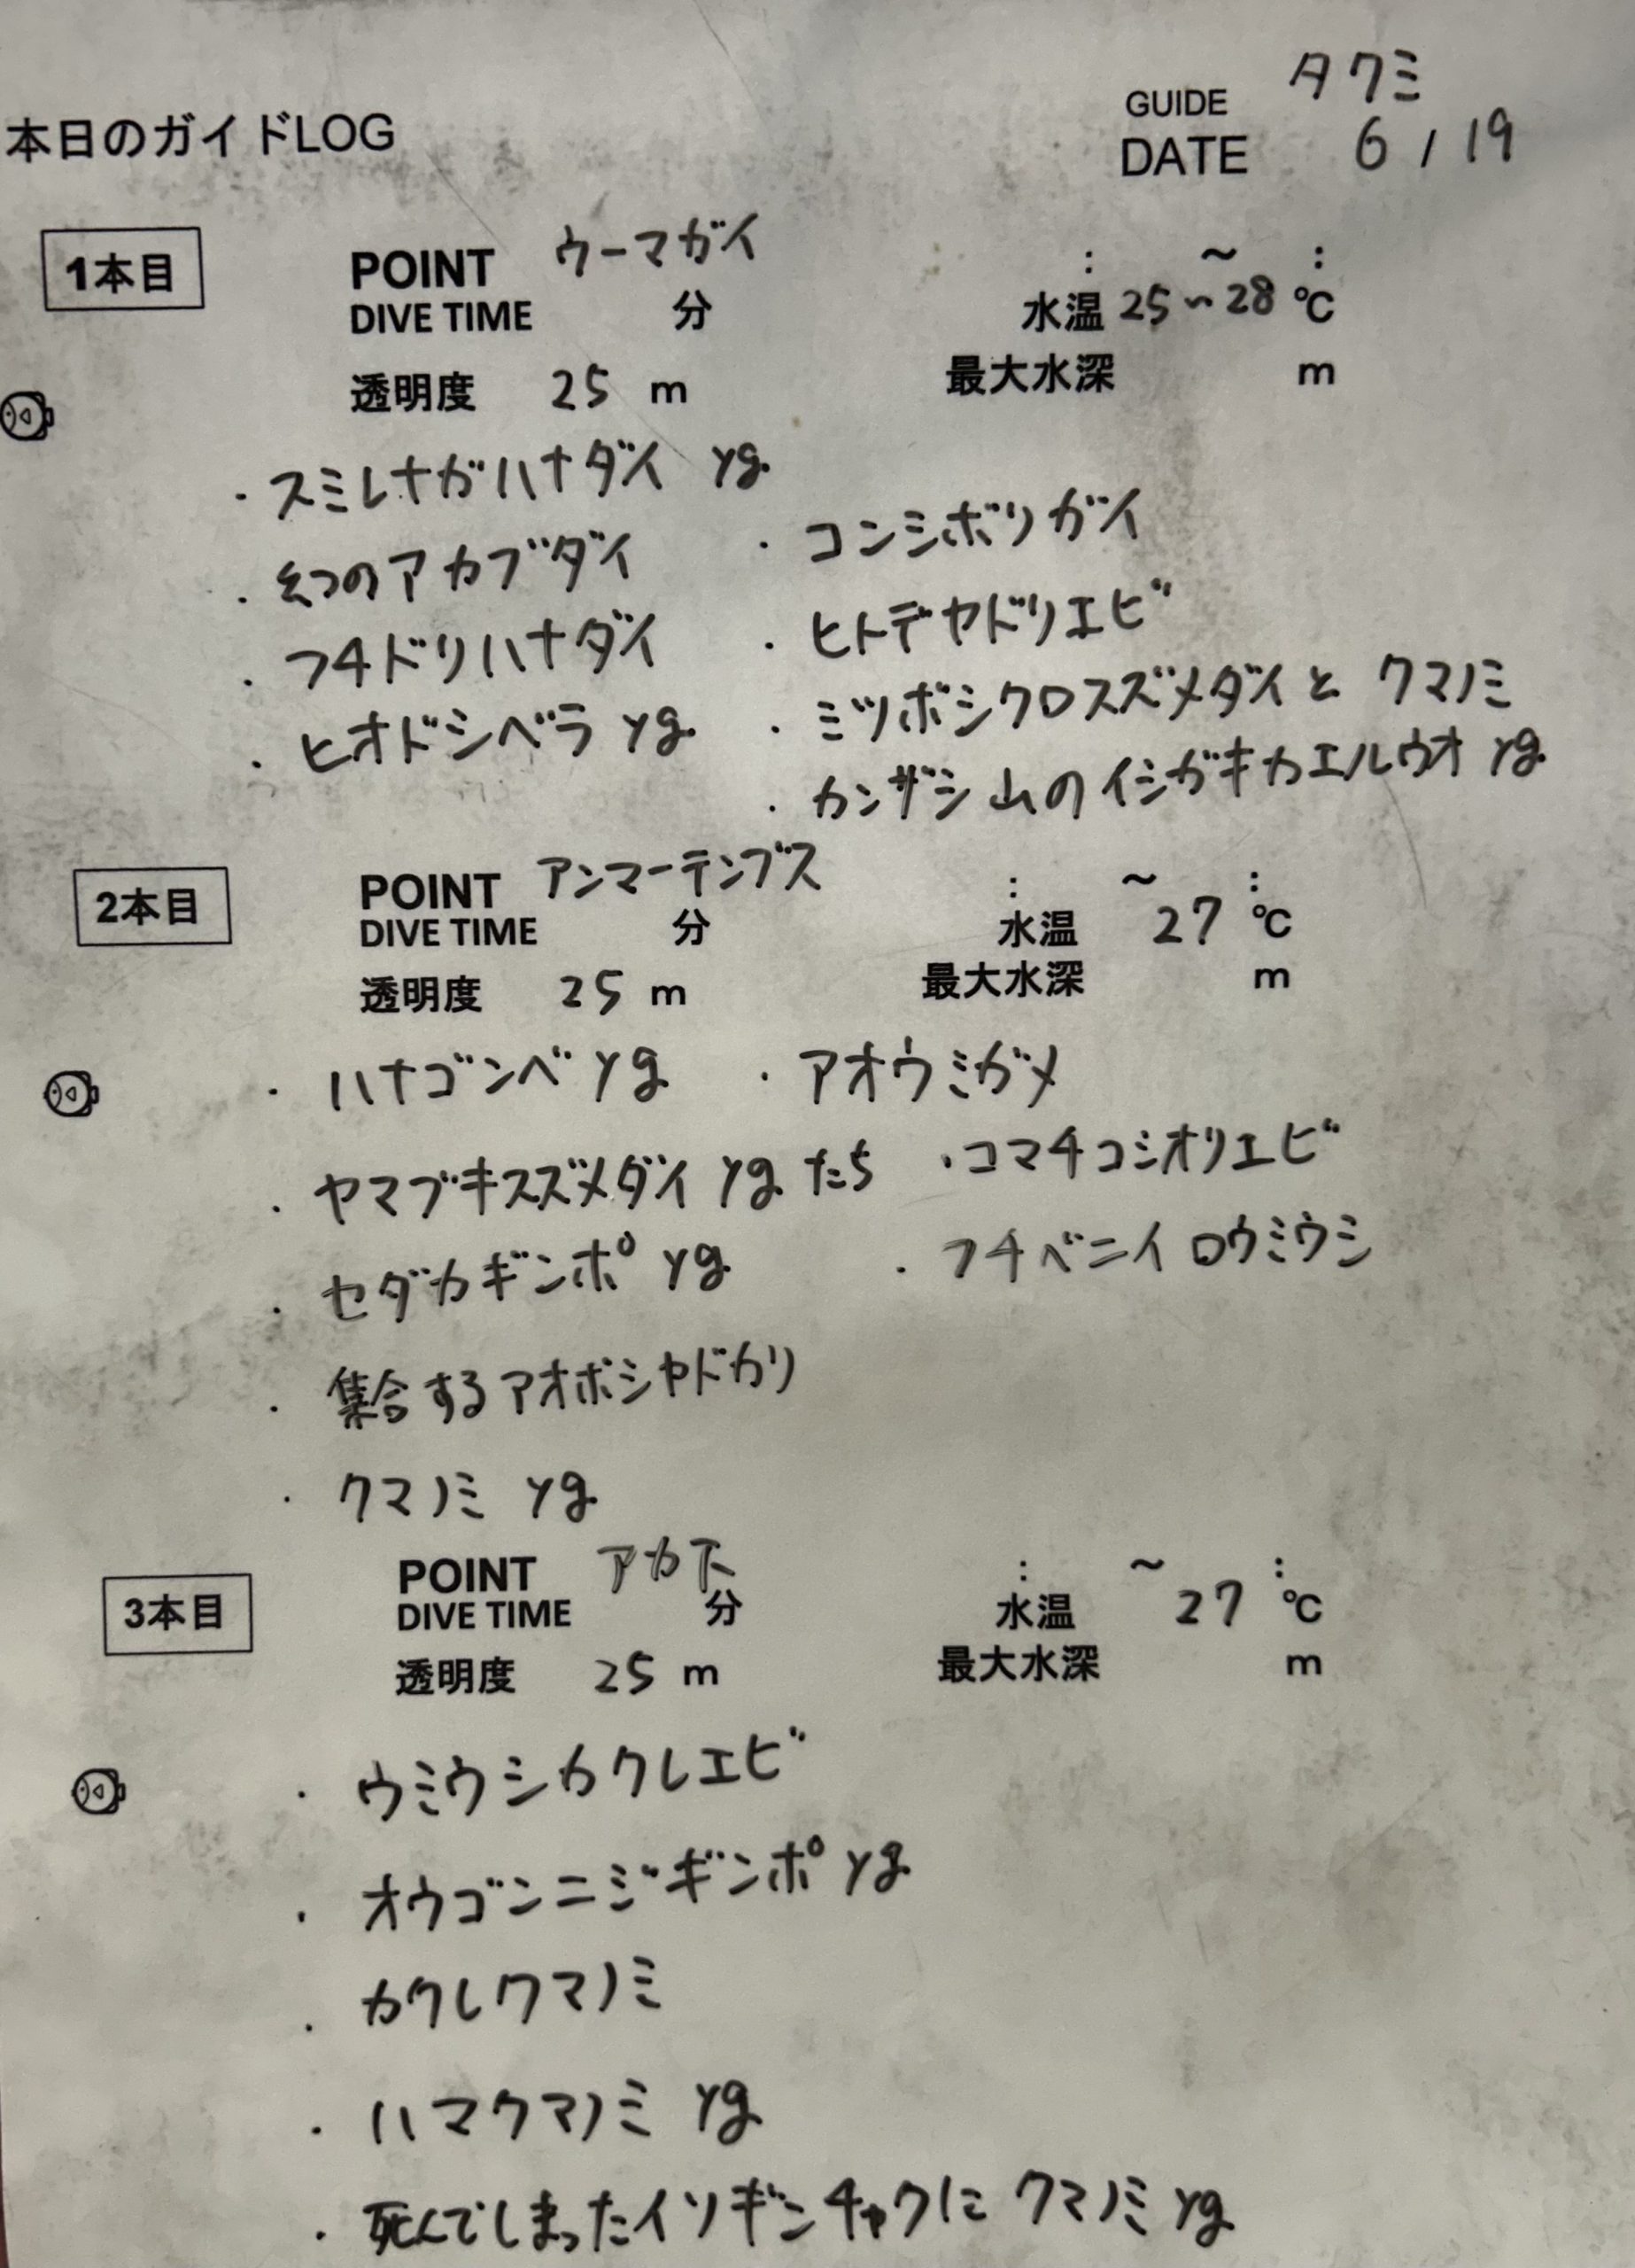 GUIDE タクミ
本日のガイドLOG
DATE 6 / 19
1本目
POINT ウーマガイ : ～ :
DIVE TIME 分 水温 25～28 ℃
透明度 25 m 最大水深 m
・スミレナガハナダイ yg.
・コンシボリガイ
・幻のアカブダイ
・ヒトデヤドリエビ
・フチドリハナダイ
・ミツボシクロスズメダイと クマノミ
・ヒオドシベラ yg.
・カンザシ山のイシガキカエルウオ yg.
2本目
POINT アンマーテンブス : ～ :
DIVE TIME 分 水温 27 ℃
透明度 25 m 最大水深 m
・ハナゴンベ yg. ・アオウミガメ
・ヤマブキスズメダイ yg. たち ・コマチコシオリエビ
・セダカギンポ yg. ・フチベニイロウミウシ
・集合するアオボシヤドカリ
・クマノミ yg.
3本目
POINT アカ下 : ～ :
DIVE TIME 分 水温 27 ℃
透明度 25 m 最大水深 m
・ウミウシカクレエビ
・オウゴンニジギンポ yg.
・カクレクマノミ
・ハマクマノミ yg.
・死んでしまったイソギンチャクに クマノミ yg.